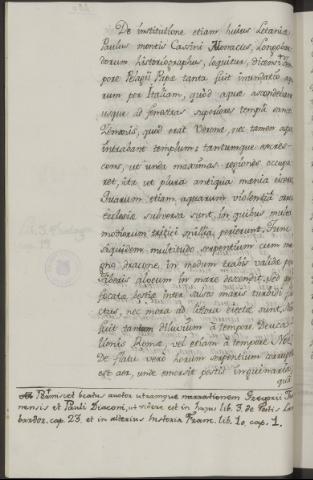 De institutione etiam huius Letaniæ
Paulus montis Cassini Monacus, Longobar-
dorum historiographus, loquitur, dicens: Tem-
pore Pelagii Papæ tanta fuit inundatio aqua-
rum per Italiam, quòd aquæ ascendebant
usque ad fenestras superiores templi sancti
Zenonis, quod erat Veronæ, nec tamen aqua
intrabant templum; tantumque excres-
cens, ut unda maximas regiones occupa-
ret, ita ut plura antiqua mænia
Quarum etiam aquarum violentiâ
ecclesiæ subversa sunt, in quibus multa
modiorum tritici millia, perierunt, Tunc
siquidem multitudo serpentium cum ma-
gno dracone, in modum trabis validæ per
alveum in mare descendit, sed
bestiæ inter salsos maris turbidi
nec mora ad littora eiectæ sunt,
fuit tantum diluvium à tempore Deuca-
lionis Romæ, vel etiam à tempore Noë.
De flatu verò horum serpentium corruptus
est aer, unde emersit pestis inguinaria,
quâ
Permiscet beatus auctor utramque narrationem Gregorii Turo-
nensis et Pauli Diaconi, ut videre est in hujus lib. 3. de Gestis Lon
bardor. cap. 23. et in alterius historia Franc. lib. 10. cap. 1.